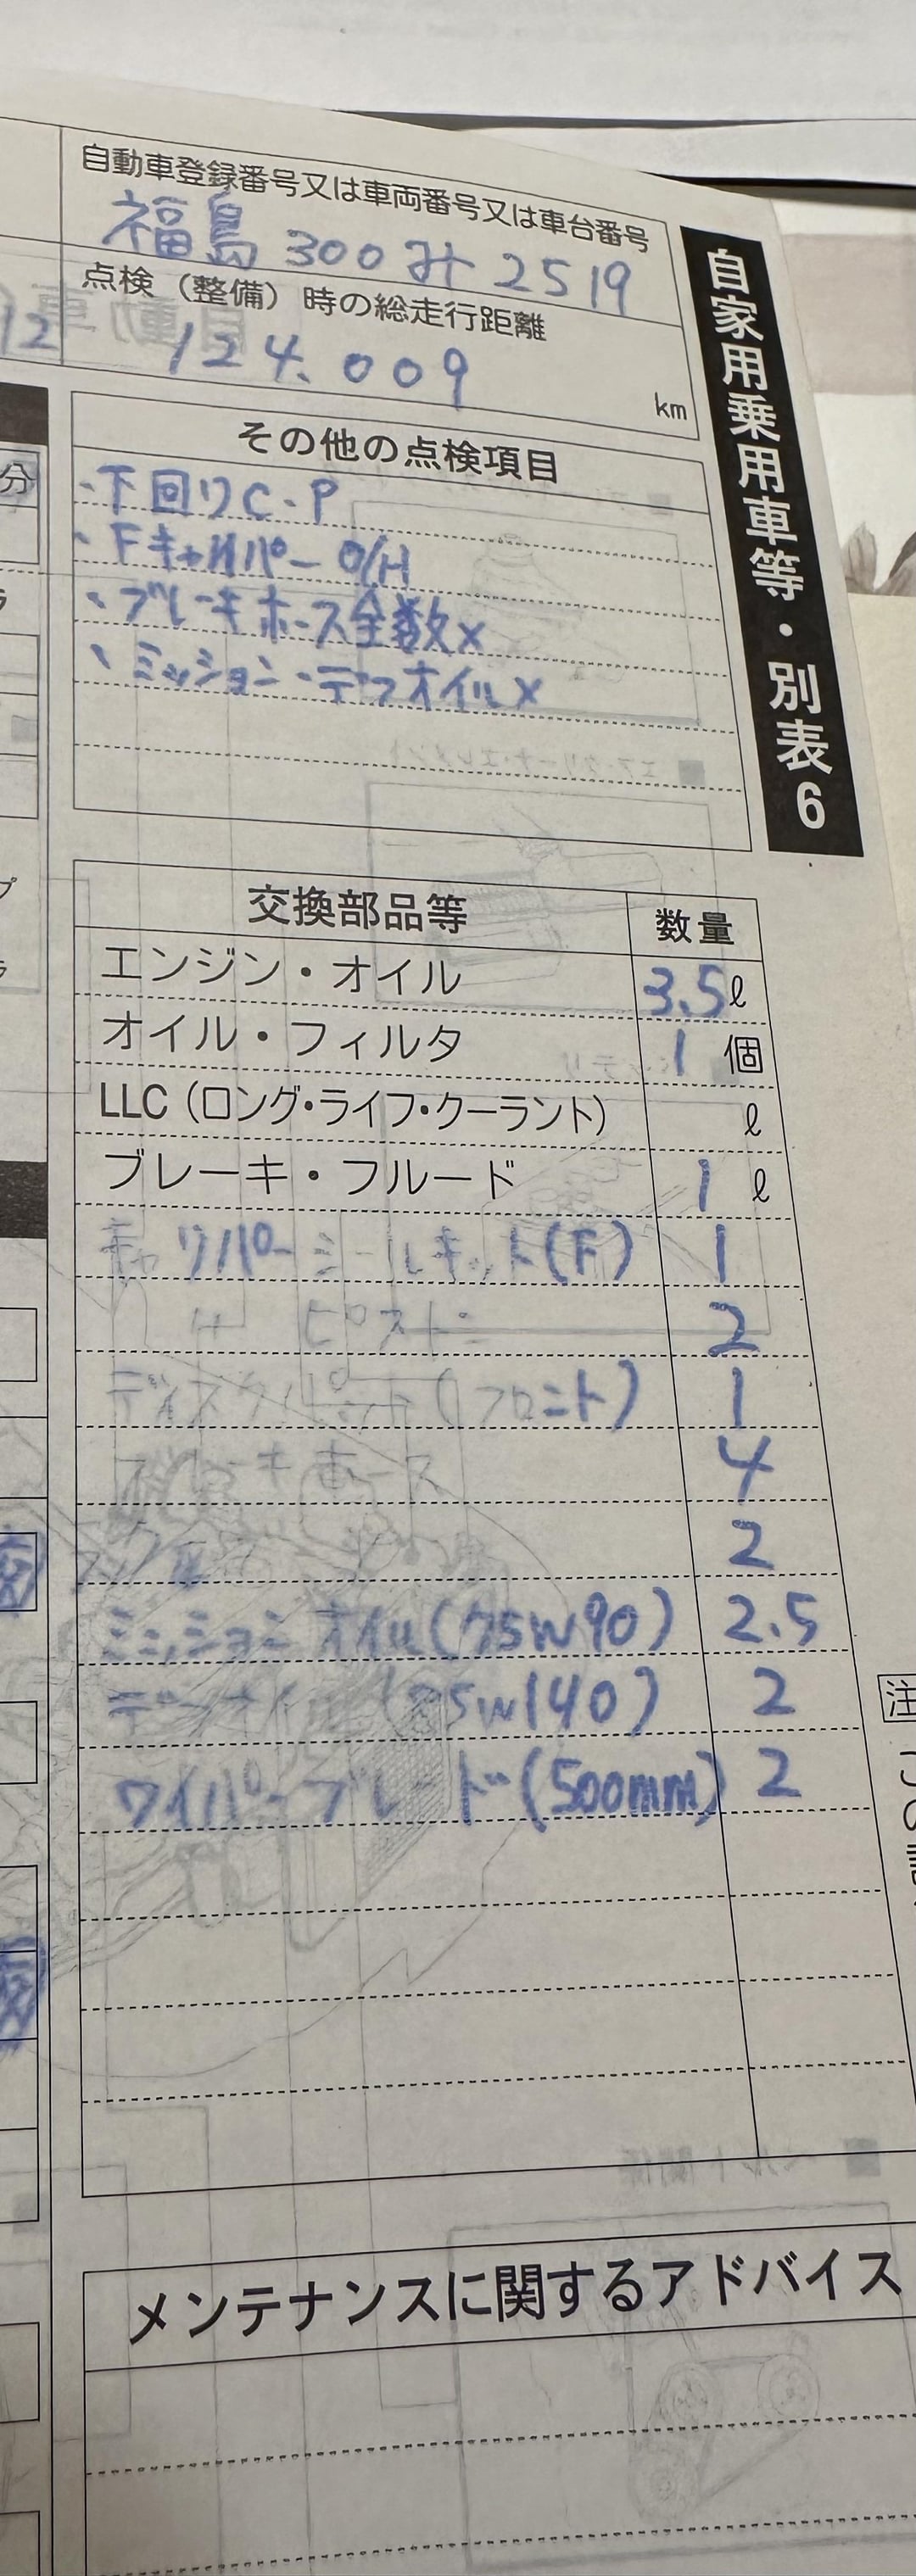 自動車登録番号又は車両番号又は車台番号
福島 300 み 2519
点検（整備）時の総走行距離
124.009
km
12
自家用乗用車等・別表6
その他の点検項目
・下回りC・P
・Fキャリパー O/H
・ブレーキホース全数×
・ミッション・デフオイル×
分
交換部品等 数量
エンジン・オイル 3.5 ℓ
オイル・フィルタ 1 個
LLC（ロング・ライフ・クーラント） ℓ
ブレーキ・フルード 1 ℓ
キャリパーシールキット(F) 1
〃 ピストン 2
ディスクパット(フロント) 1
ブレーキホース 4
2
ミッションオイル(75W90) 2.5
デフオイル(75W140) 2
ワイパーブレード(500mm) 2
注
メンテナンスに関するアドバイス